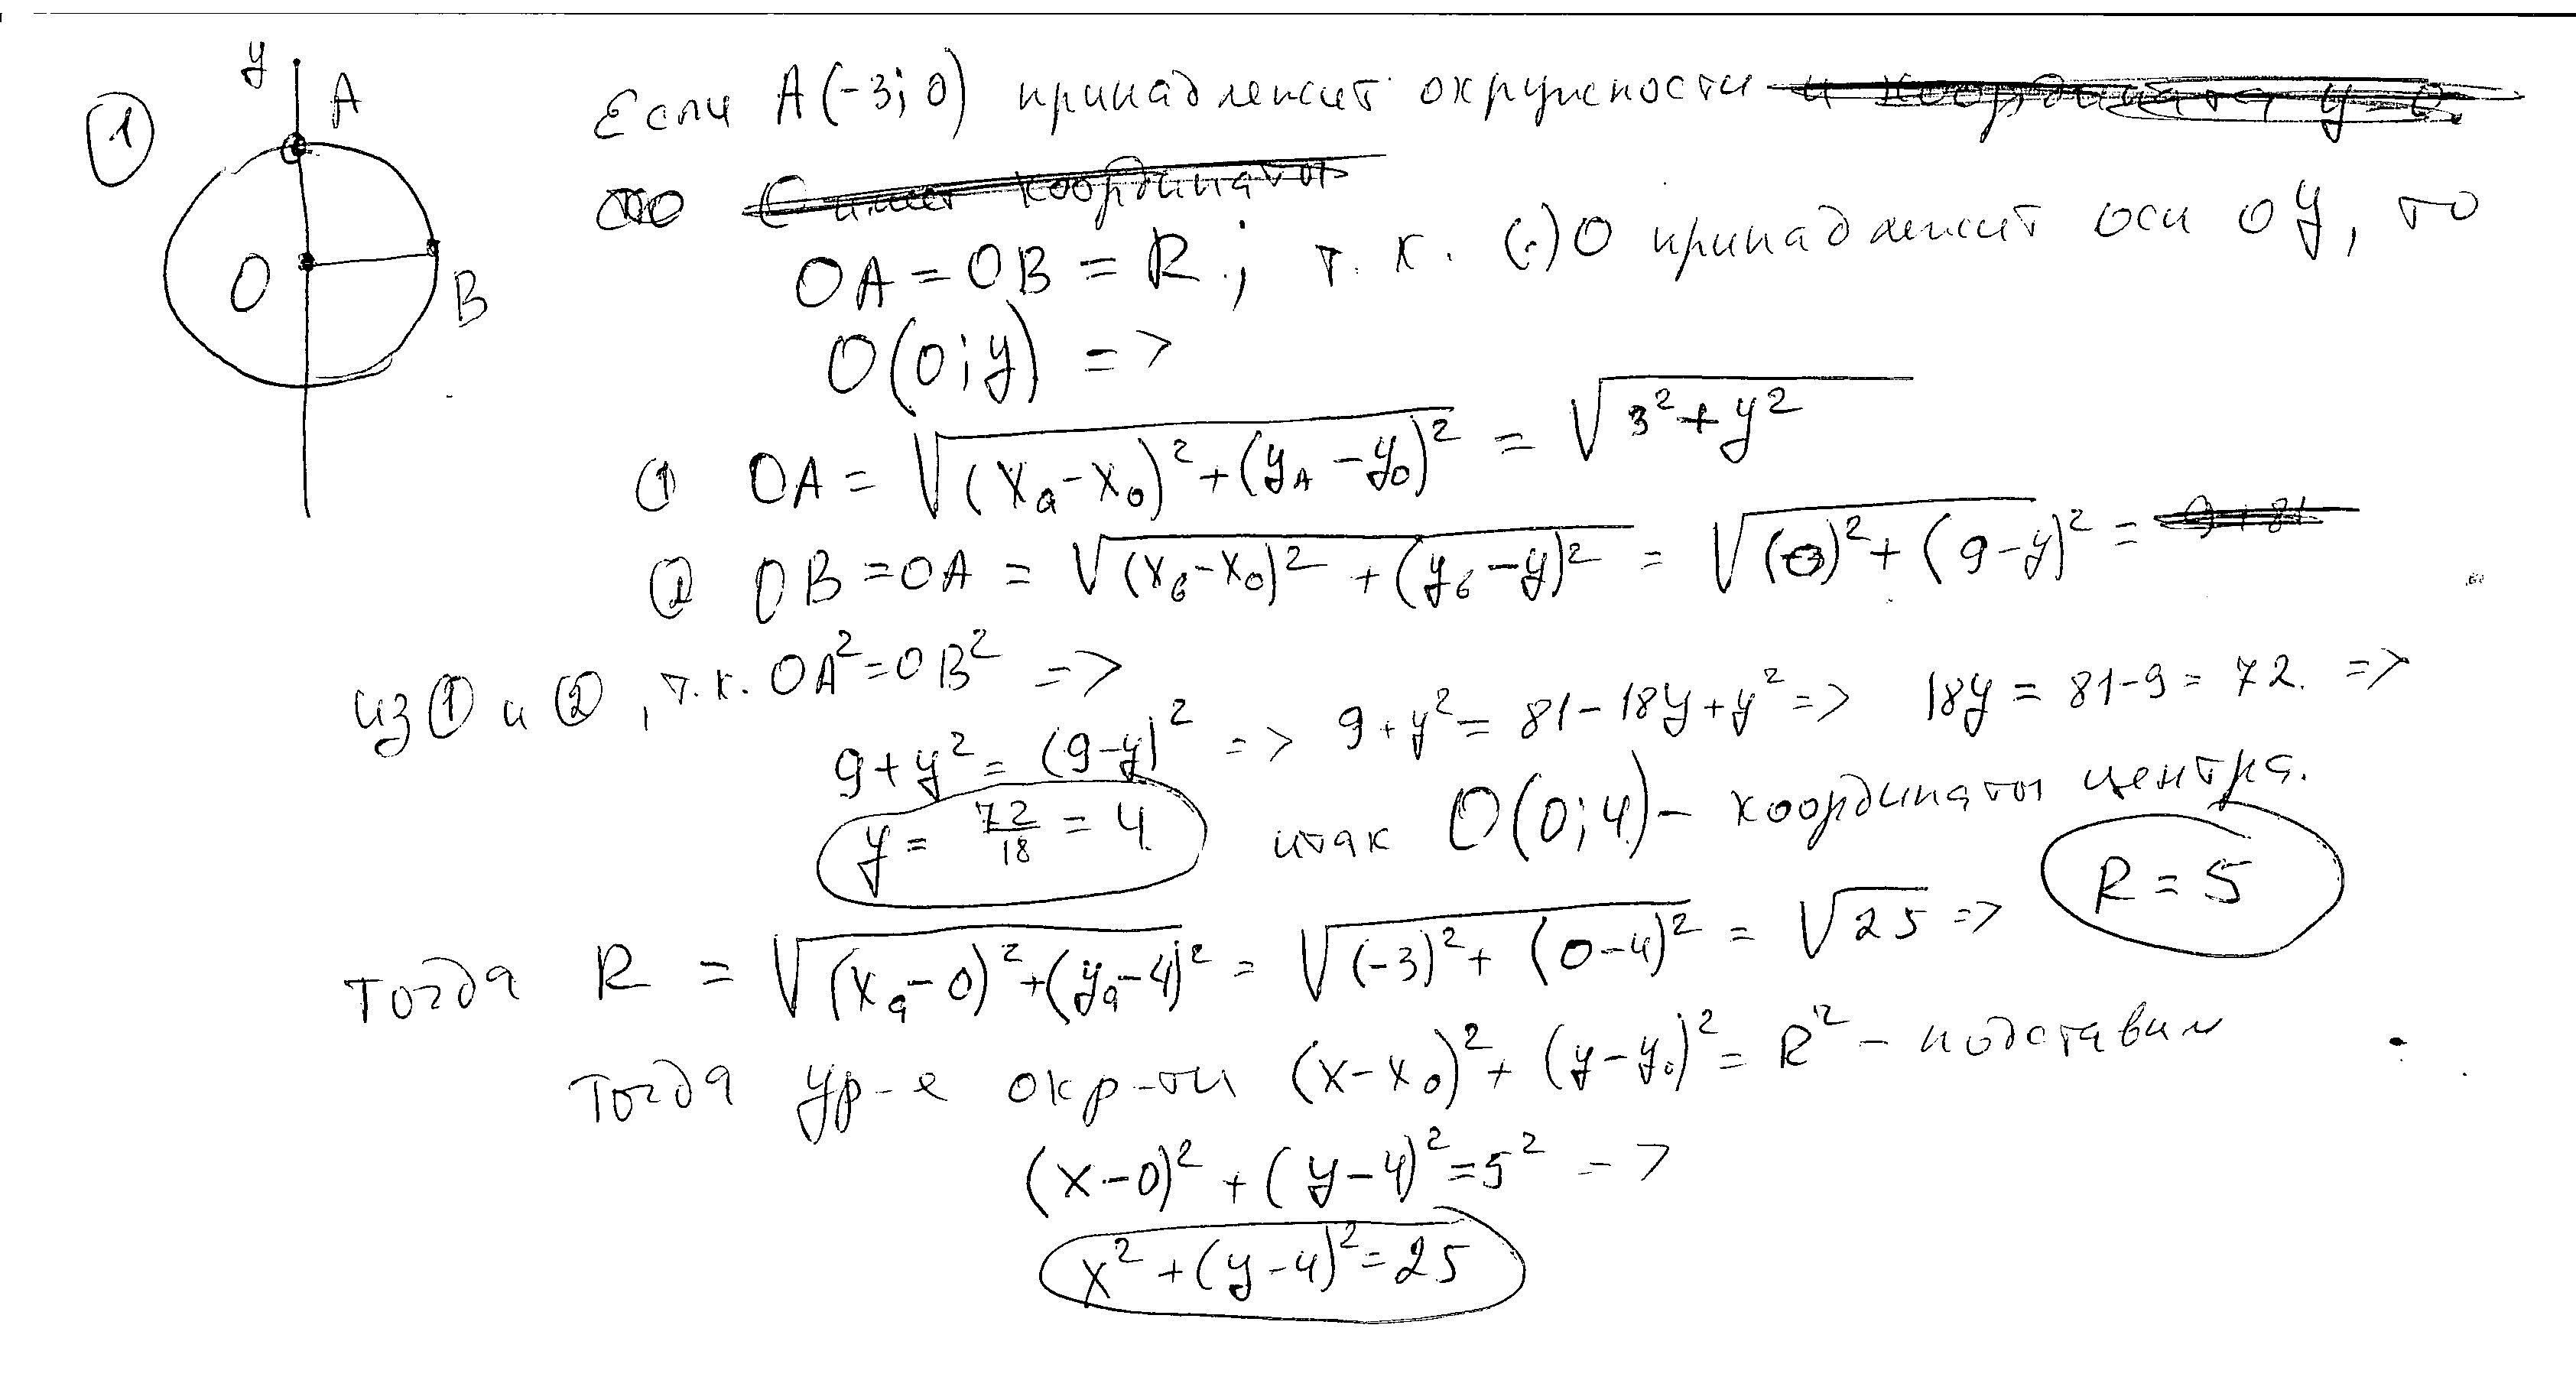 ① y A O B
Если A(-3; 0) принадлежит окружности и координата y=0
то С имеет координаты
OA = OB = R; т. к. (·) O принадлежит оси OY, то
O(0; y) =>
① OA = √((xₐ-x₀)² + (y_A - y₀)²) = √(3² + y²)
② OB = OA = √((x_б - x₀)² + (y_б - y)²) = √((0)² + (9-y)²) = 9+81
из ① и ②, т.к. OA² = OB² =>
9 + y² = (9-y)² => 9 + y² = 81 - 18y + y² => 18y = 81-9 = 72. =>
y = 72/18 = 4 итак O(0; 4) - координаты центра.
Тогда R = √((xₐ-0)² + (yₐ-4)²) = √((-3)² + (0-4)²) = √25 => R = 5
Тогда ур-е окр-ти (x-x₀)² + (y-y₀)² = R² - подставим
(x-0)² + (y-4)² = 5² =>
x² + (y-4)² = 25